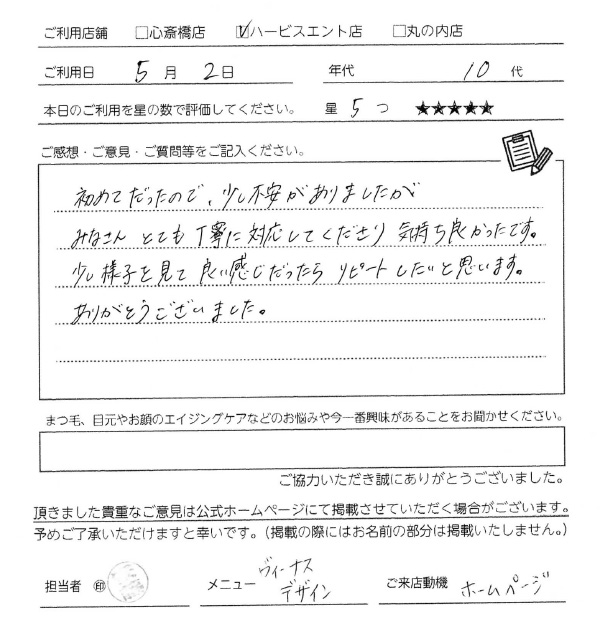 ご利用店舗 □心斎橋店 ☑ハービスエント店 □丸の内店
ご利用日 5月 2日 年代 10代
本日のご利用を星の数で評価してください。 星 5 つ ★★★★★
ご感想・ご意見・ご質問等をご記入ください。
初めてだったので、少し不安がありましたが
みなさん とても 丁寧に対応してくださり 気持ち良かったです。
少し様子を見て 良い感じだったら リピートしたいと思います。
ありがとうございました。
まつ毛、目元やお顔のエイジングケアなどのお悩みや今一番興味があることをお聞かせください。
ご協力いただき誠にありがとうございました。
頂きました貴重なご意見は公式ホームページにて掲載させていただく場合がございます。
予めご了承いただけますと幸いです。（掲載の際にはお名前の部分は掲載いたしません。）
担当者 ㊞ メニュー ヴィーナス デザイン ご来店動機 ホームページ